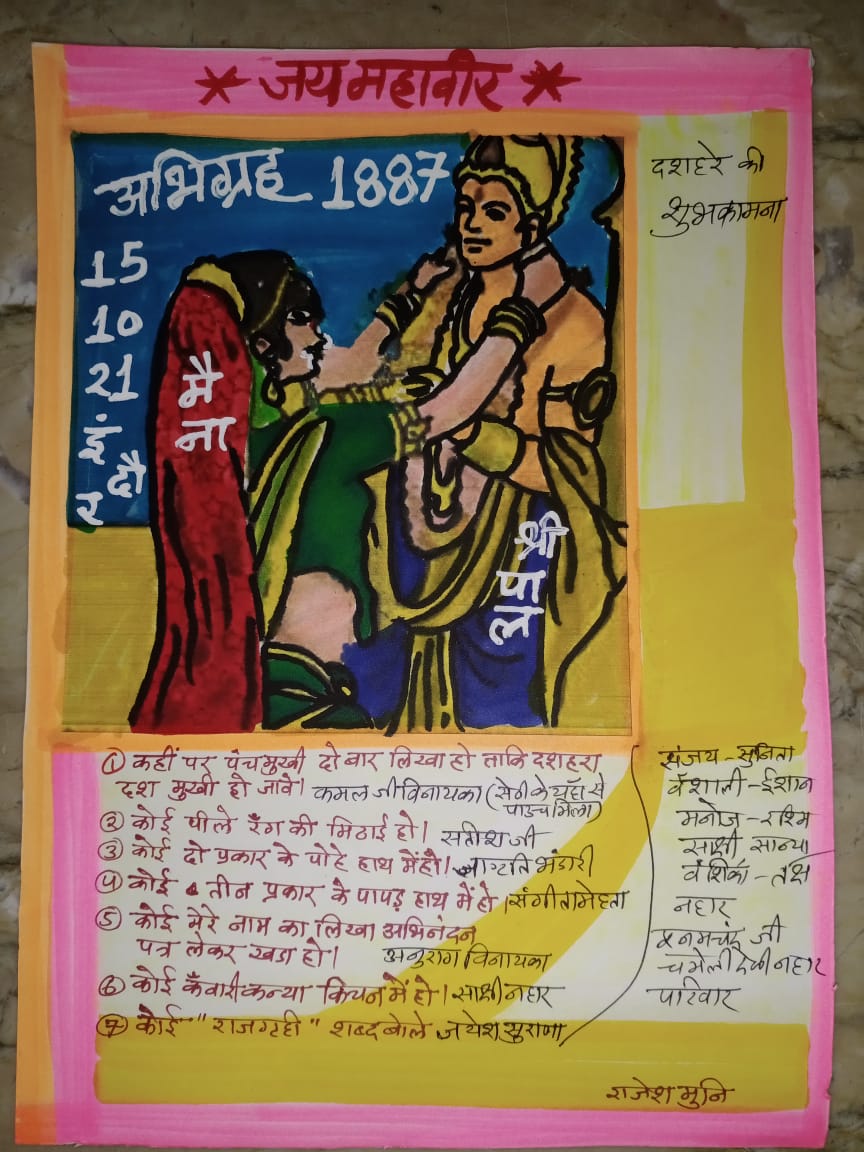 * जय महावीर *
अभिग्रह 1887
15
10
21
इंदौर
मैना
श्रीपाल
दशहरे की
शुभकामना
① कहीं पर पंचमुखी दो बार लिखा हो ताकि दशहरा
दश मुखी हो जावे। कमल जी विनायका (सेठी के यहाँ से
पाऊच मिला)
② कोई पीले रंग की मिठाई हो। सतीश जी
③ कोई दो प्रकार के पोहे हाथ में हो। जाग्रति भंडारी
④ कोई तीन प्रकार के पापड़ हाथ में हो। संगीता मेहता
⑤ कोई मेरे नाम का लिखा अभिनंदन
पत्र लेकर खडा हो। अनुराग विनायका
⑥ कोई कँवारी कन्या किचन में हो। साक्षी नहार
⑦ कोई "राजगृही" शब्द बोले जयेश सुराणा
संजय - सुनिता
वैशाली - ईशान
मनोज - रश्मि
साक्षी सान्या
वंशिका - तक्ष
नहार
पूनमचंद जी
चमेली देवी नहार
परिवार
राजेश मुनि